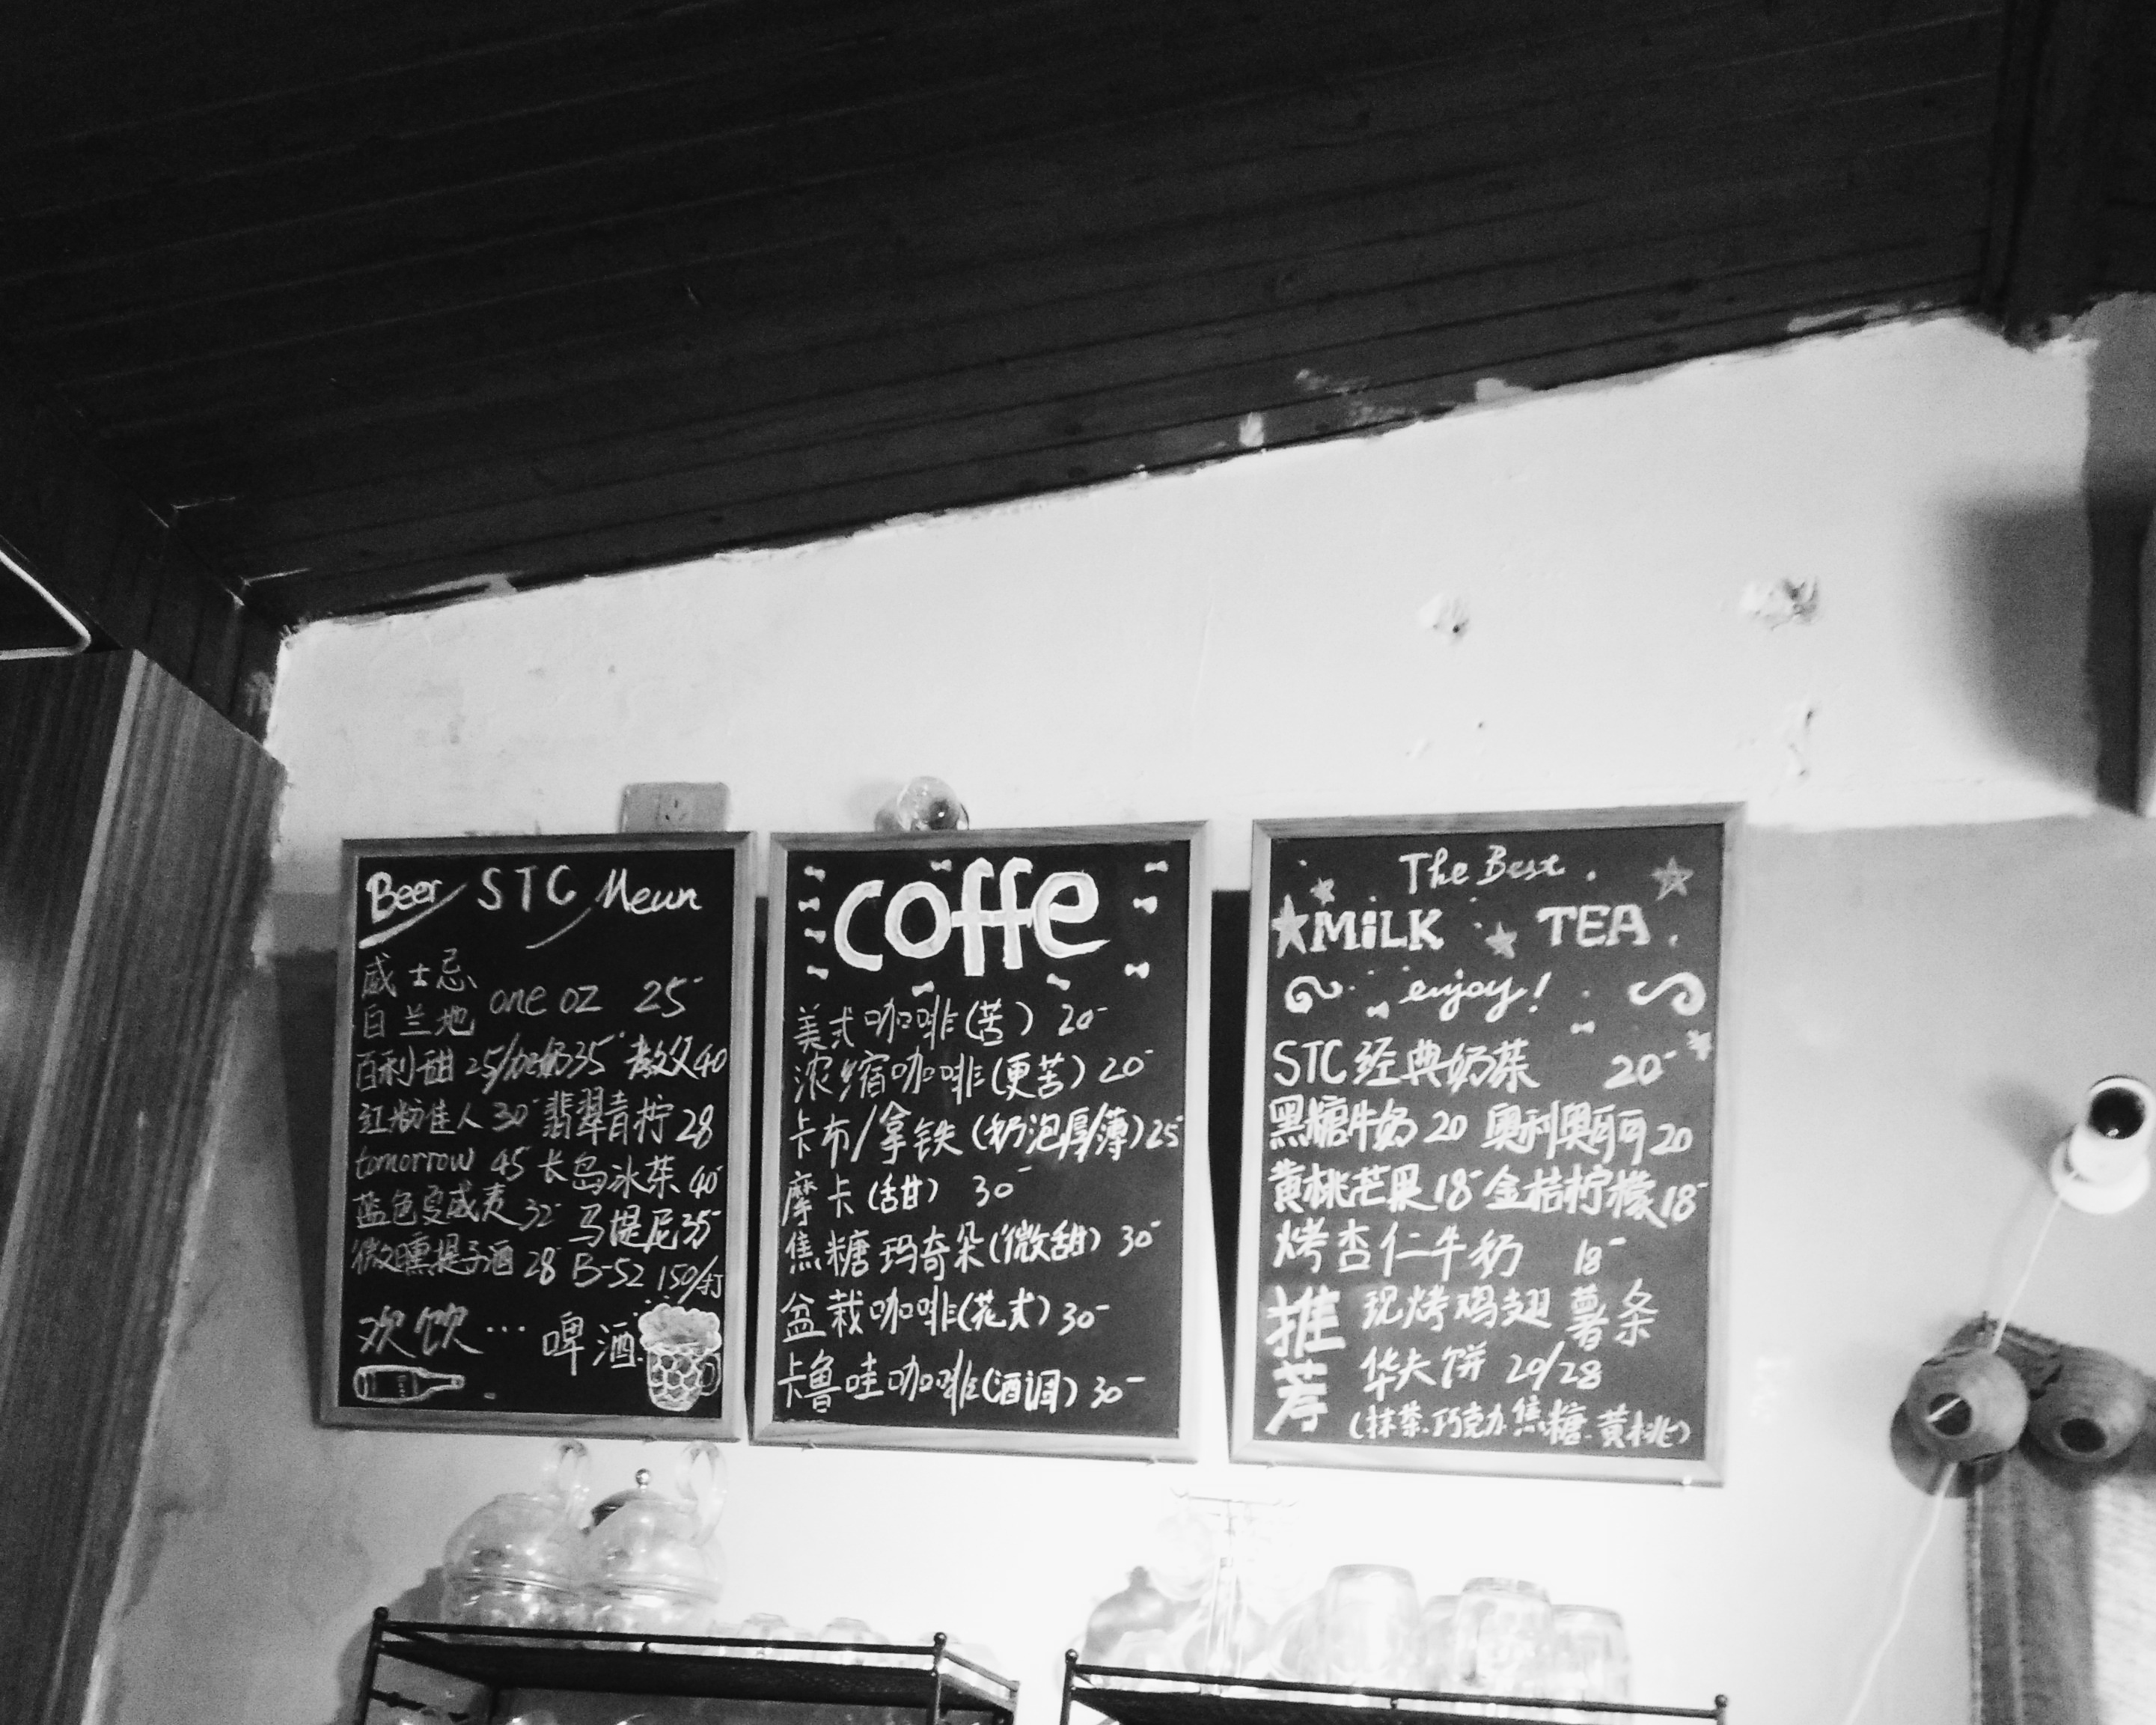 Beer STC Meun
威士忌
白兰地 one oz 25-
百利甜 25/加奶35- 教父40
红粉佳人 30- 翡翠青柠 28
tomorrow 45 长岛冰茶 40-
蓝色夏威夷 32- 马提尼 35-
微醺提子酒 28- B-52 150/打
欢饮... 啤酒
coffe
美式咖啡(苦) 20-
浓缩咖啡(更苦) 20-
卡布/拿铁 (奶泡厚/薄) 25
摩卡(甜) 30-
焦糖玛奇朵(微甜) 30-
盆栽咖啡(花式) 30-
卡鲁哇咖啡(酒调) 30-
The Best.
MiLK TEA.
enjoy!
STC 经典奶茶 20-
黑糖牛奶 20 奥利奥可可 20
黄桃芒果 18- 金桔柠檬 18-
烤杏仁牛奶 18-
推荐 现烤鸡翅 薯条
华夫饼 20/28
(抹茶.巧克力.焦糖.黄桃)